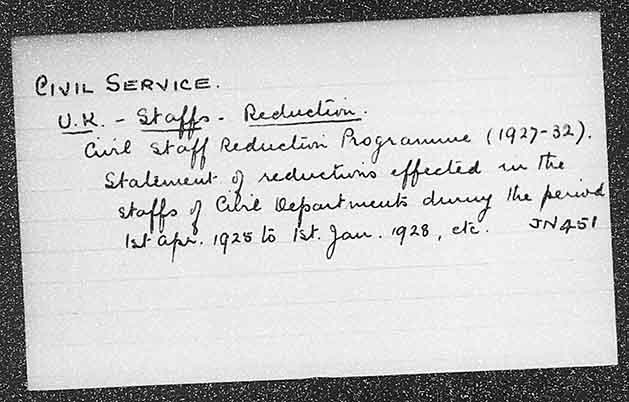 CIVIL SERVICE.
U.K. - Staffs - Reduction.
Civil Staff Reduction Programme (1927-32).
Statement of reductions effected in the
staffs of Civil Departments during the period
1st Apr. 1925 to 1st. Jan. 1928, etc. JN451